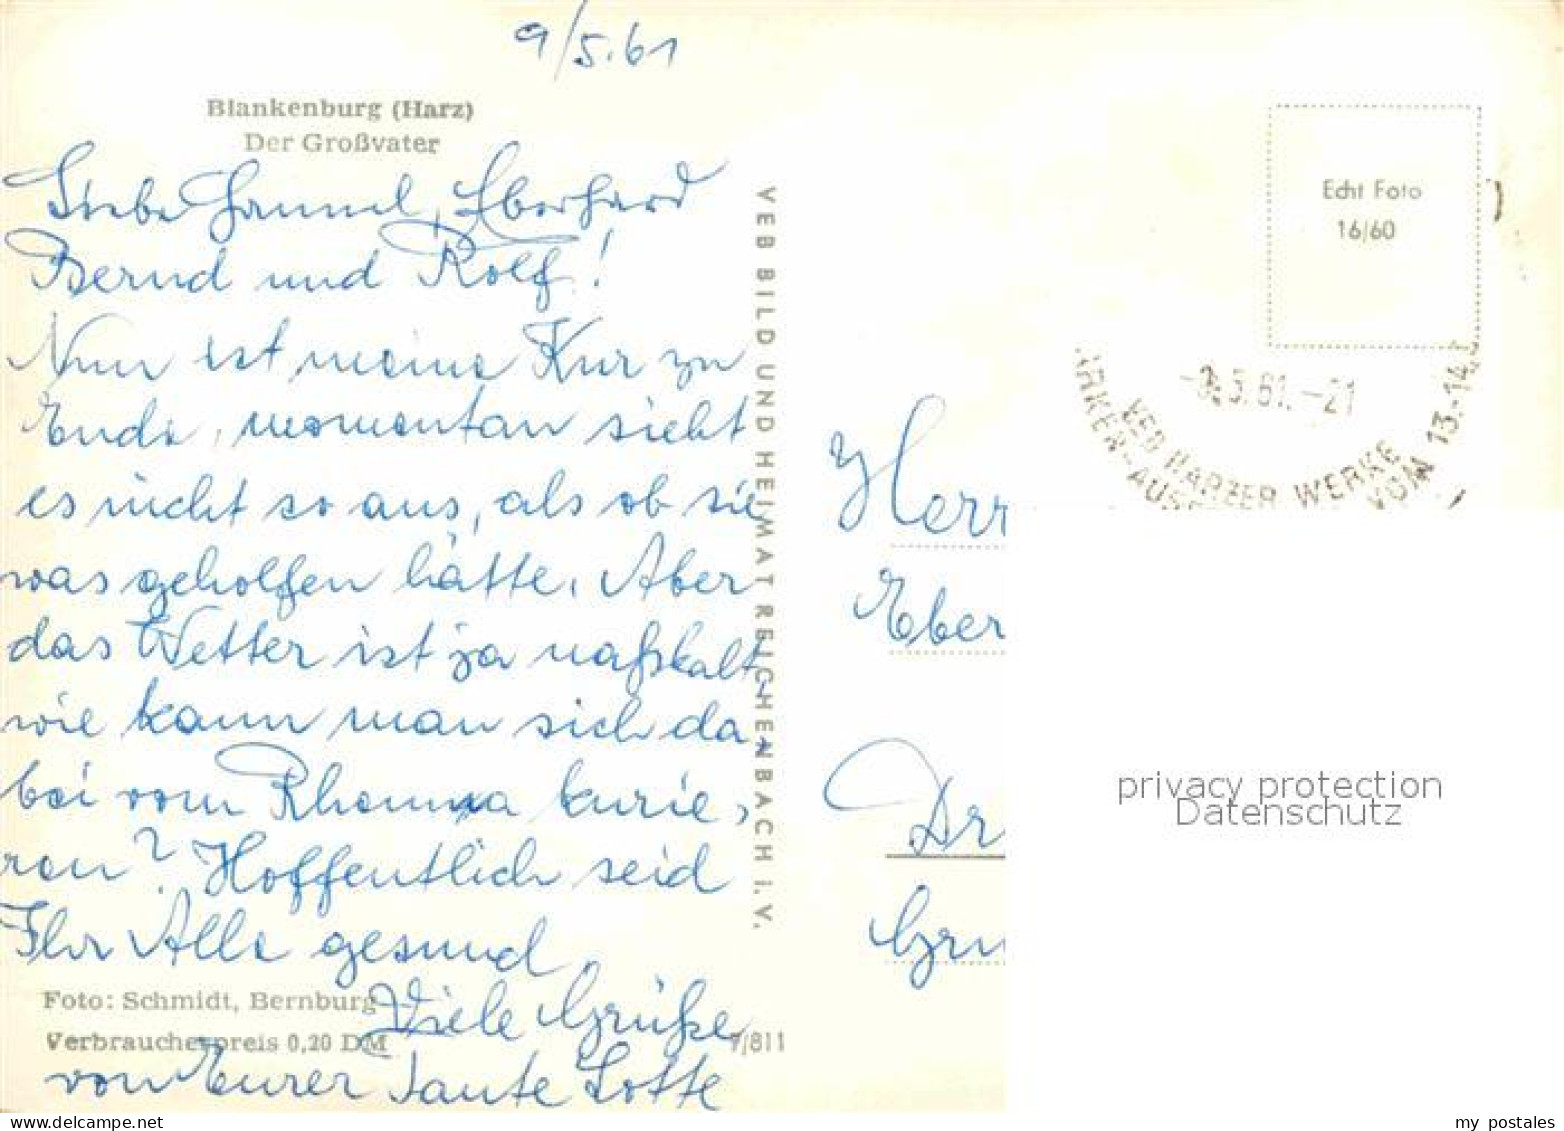 9/5.61
Blankenburg (Harz)
Der Großvater
Liebe Hannel, Eberhard
Bernd und Rolf!
Nun ist meine Kur zu
Ende, momentan sieht
es nicht so aus, als ob sie
was geholfen hätte. Aber
das Wetter ist ja naßkalt,
wie kann man sich da-
bei vom Rheuma kurie-
ren? Hoffentlich seid
Ihr Alle gesund.
Viele Grüße
von Eurer Tante Lotte
Foto: Schmidt, Bernburg
Verbraucherpreis 0,20 DM
7/811
VEB BILD UND HEIMAT REICHENBACH I. V.
Echt Foto
16/60
5.61.-21
HARZER WERKE
VOM 13.-14.
Herr
Eber
Dr
Gru
privacy protection
Datenschutz
my postales